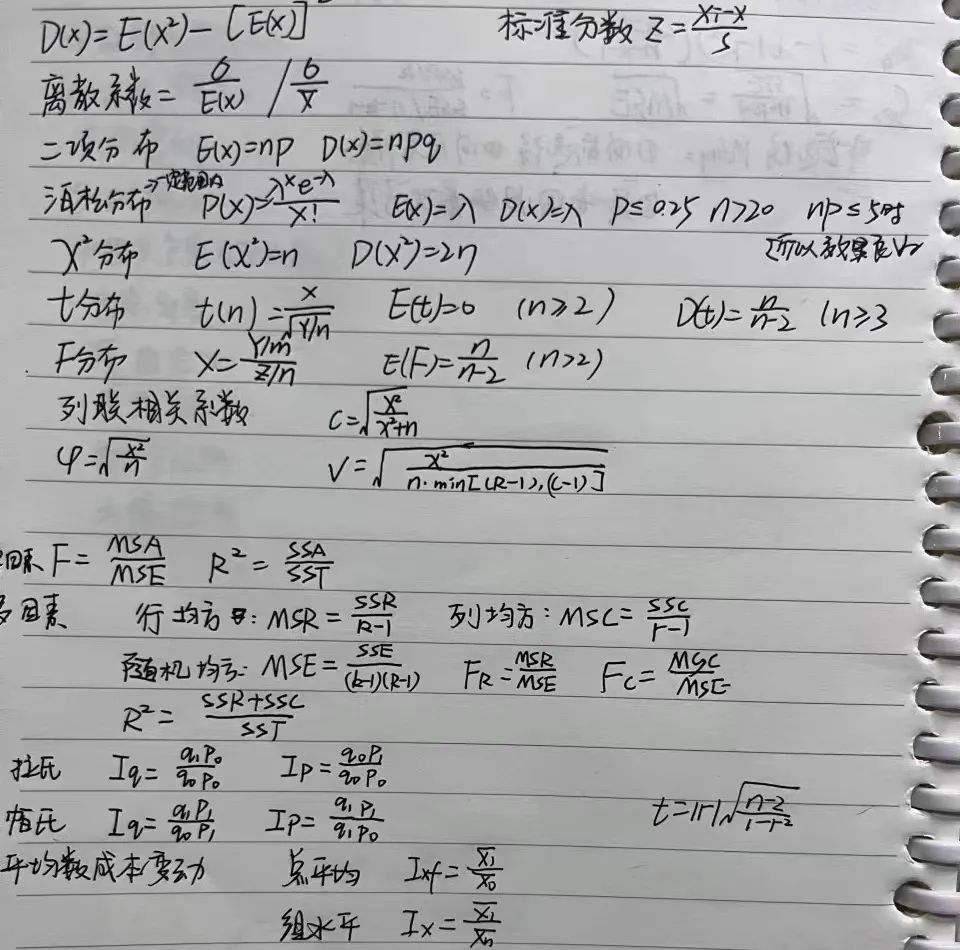 D(x)=E(x²)-[E(x)]² 标准分数 Z=(xi-x)/s
离散系数=σ/E(x) / σ/x̄
二项分布 E(x)=np D(x)=npq
泊松分布 P(x)=λˣe^-λ/x! E(x)=λ D(x)=λ P≤0.25 n>20 np≤5时
χ²分布 E(χ²)=n D(χ²)=2n
t分布 t(n)=x/√(Y/n) E(t)=0 (n≥2) D(t)=n/(n-2) (n≥3
F分布 X=(Y/m)/(Z/n) E(F)=n/(n-2) (n>2)
列联相关系数 C=√(χ²/(χ²+n))
φ=√(χ²/n) V=√(χ²/(n·min[(R-1),(C-1)]))
因素 F=MSA/MSE R²=SSA/SST
多因素 行均方: MSR=SSR/(k-1) 列均方: MSC=SSC/(r-1)
随机均方: MSE=SSE/((k-1)(R-1)) FR=MSR/MSE FC=MSC/MSE
R²=(SSR+SSC)/SST
拉氏 Iq=q₁p₀/q₀p₀ Ip=q₀p₁/q₀p₀
帕氏 Iq=q₁p₁/q₀p₁ Ip=q₁p₁/q₁p₀
t=|r|√((n-2)/(1-r²))
平均数成本变动 总平均 Ixf=x̄₁/x̄₀
组水平 Ix=x̄₁/x̄n